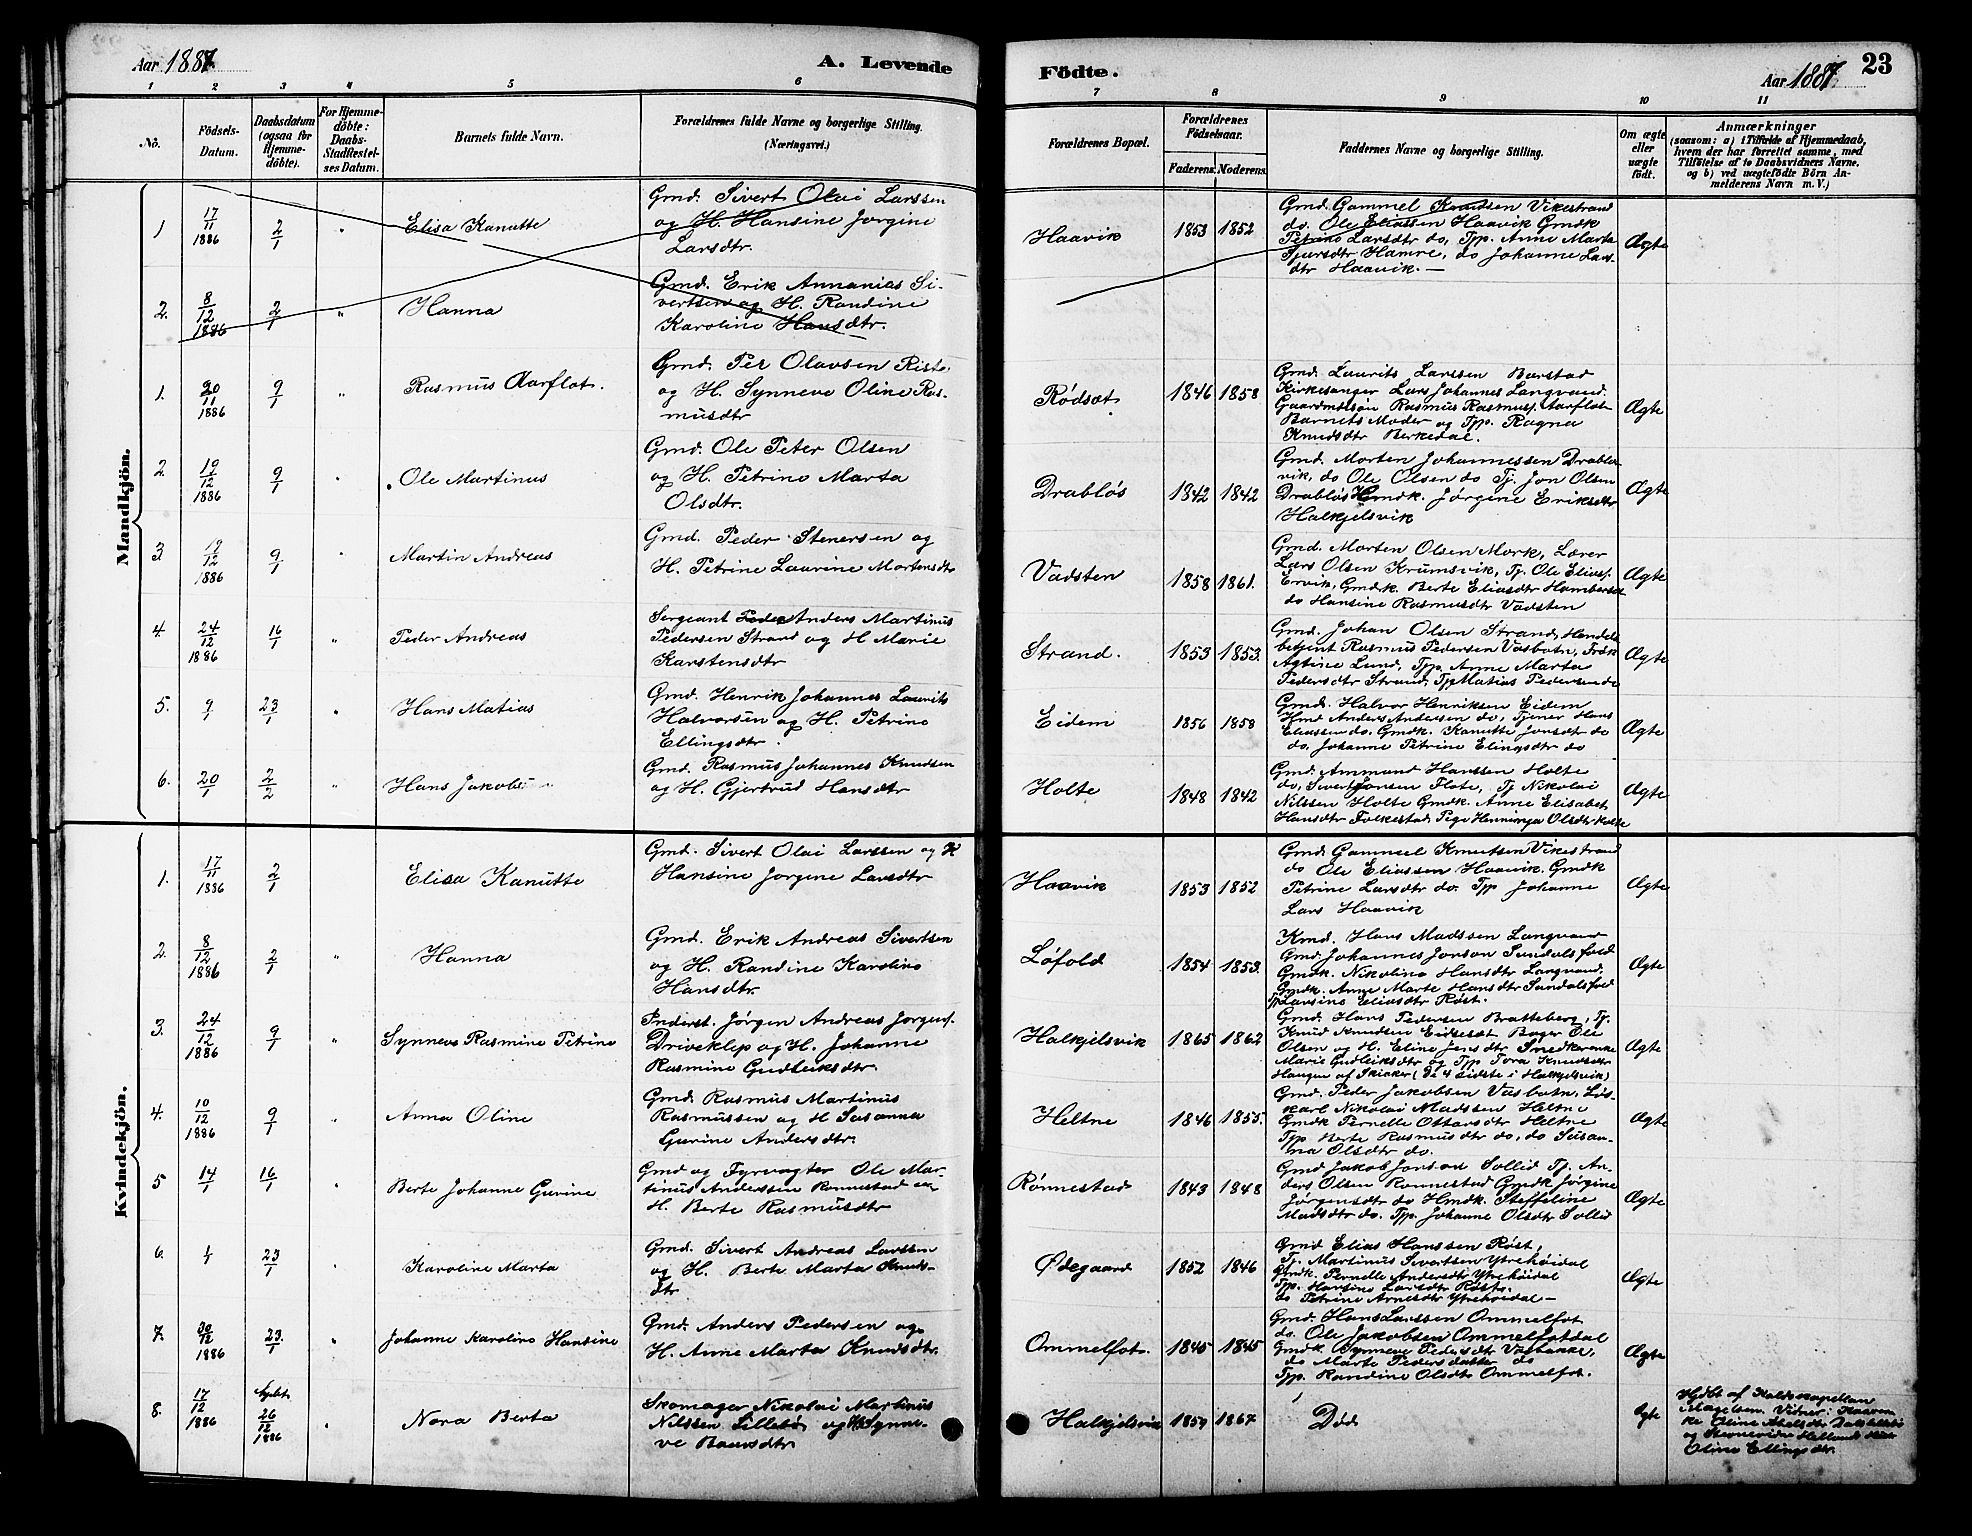 Aar 1887.
A. Levende
Födte.
Aar 1887.
23
1 2 3 4 5 6 7 8 9 10 11
No.
Födsels-
Datum.
Daabsdatum
(ogsaa for
Hjemme-
döbte).
For Hjemme-
döbte:
Daabs-
Stadfæstel-
ses Datum.
Barnets fulde Navn.
Forældrenes fulde Navne og borgerlige Stilling.
(Næringsvei.)
Forældrenes Bopæl.
Forældrenes
Födselsaar.
Faderens. Moderens.
Faddernes Navne og borgerlige Stilling.
Om ægte
eller
uægte
födt.
Anmærkninger
(saasom: a) i Tilfælde af Hjemmedaab,
hvem der har forrettet samme, med
Tilföielse af to Daabsvidners Navne,
og b) ved uægtefödte Börn An-
melderens Navn m. V.)
Mandkjön.
1 17/11 1886 2/1 " Elisa Kanutte
Gmd. Sivert Olai Larssen
og H. Hansine Jorgine
Larsdtr.
Haavik 1853 1852
Gmd. Gammel Knudsen Vikestrand
do. Ole Eliassen Haavik Gmdk
Petrine Larsdtr do, Tpp. Anne Marta
Sjursdtr Hamre, do Johanne Lars-
dtr Haavik. —
Ægte
2. 8/12 1886 2/1 " Hanna
Gmd. Erik Annanias Si-
vertsen og H. Randine
Karoline Hansdtr.
1. 20/11 1886 9/1 " Rasmus Aarflot.
Gmd. Per Olavsen Riste
og H. Synneve Oline Ras-
musdtr
Rödsæt 1846 1858
Gmd. Laurits Larssen Barstad
Kirkesanger Lars Johannes Langvand.
Gaardmdssön Rasmus Rasmuss. Aarflot
Barnets Moder og Tpp. Ragna
Knudsdtr Berkedal.
Ægte
2. 19/12 1886 9/1 " Ole Martinus
Gmd. Ole Peter Olsen
og H. Petrine Marta
Olsdtr.
Drablös 1842 1842
Gmd. Morten Johannessen Drablös
vik, do Ole Olsen do Tj. Jon Olsen
Drablös Hmdk. Jörgine Eriksdtr
Halkjelsvik
Ægte
3. 19/12 1886 9/1 " Martin Andreas
Gmd. Peder Stenersen og
H. Petrine Laurine Mortensdtr
Vadsten 1858 1861.
Gmd. Morten Olsen Mork, Lærer
Lars Olsen Krumsvik, Tj. Ole Eliass.
Ervik, Gmdk. Berte Eliasdtr
do Hansine Rasmusdtr Vadsten
Ægte
4. 24/12 1886 16/1 " Peder Andreas
Sergeant Peder Anders Martinus
Pedersen Strand og H Marie
Karstensdtr
Strand. 1853 1853.
Gmd. Johan Olsen Strand, Handels
betjent Rasmus Pedersen Vasbotn, Frök
Agtine Lund, Tpp. Anne Marta
Pedersdtr Strand, Tj. Matias Pedersen do
Ægte
5. 9/1 23/1 " Hans Matias
Gmd. Henrik Johannes Laurits
Halvorsen og H. Petrine
Ellingsdtr.
Eidem 1856 1858
Gmd. Halvor Henriksen Eidem
Hmd Anders Andersen do, Tjener Hans
Eliassen do. Gmdk. Kanutte Jonsdtr do
do. Johanne Petrine Elingsdtr do
Ægte
6. 20/1 2/2 " Hans Jakob
Gmd. Rasmus Johannes Knudsen
og H. Gjertrud Hansdtr
Holte 1848 1842
Gmd. Ammund Hanssen Holte
do, Sivert Jonsen Flote, Tj Nikolai
Nilssen Holte Gmdk. Anne Elisabet
Hansdtr Folkestad, Pige Henninga Olsdtr Holte
Ægte
Kvindekjön.
1. 17/11 1886 2/1 Elisa Kanutte
Gmd. Sivert Olai Larssen og H
Hansine Jorgine Larsdtr
Haavik 1853 1852
Gmd. Gammel Knutsen Vikestrand
do Ole Eliassen Haavik. Gmdk
Petrine Larsdtr do. Tpp Johanne
Lars Haavik
Ægte
2. 8/12 1886 2/1 " Hanna
Gmd. Erik Andreas Sivertsen
og H. Randine Karoline
Hansdtr.
Löfold 1854 1853.
Kmd. Hans Madssen Langvand
Gmd. Johannes Jonson Sundalsfold
Gmdk. Nikoline Hansdtr Langvand,
Gmdk. Anne Marte Hansdtr Sundalsfold
Tp Larsine Eliasdtr Röst.
Ægte
3. 24/12 1886 9/1 " Synneve Rasmine Petrine
Inderst. Jörgen Andreas Jorgens.
Driveklep og H. Johanne
Rasmine Gudleiksdtr.
Halkjelsvik 1865 1862
Gmd. Hans Pedersen Bratteberg, Tj.
Knud Knudsen Eidsesæt Bager Ole
Olsen og H. Eline Jensdtr Smedkone
Marie Gudleiksdtr og Tpp Tora Knudsdtr
Haugen af Skieker (De 4 sidste i Halkjelsvik)
Ægte
4. 10/12 1886 9/1 Anna Oline
Gmd Rasmus Martinus
Rasmussen og H Susanna
Gurine Andersdtr.
Heltne 1846 1855.
Gmd. Peder Jakobsen Vasbotn, Lös
karl Nikolai Madssen Heltne
Gmdk Pernelle Ottarsdtr Heltne
Tpp Berte Rasmusdtr do, do Susan-
na Olsdtr do.
Ægte
5 14/1 16/1 " Berte Johanne Gurine
Gmd og Fyrvagter Ole Mar-
tinus Anderssen Ronnestad og
H. Berte Rasmusdtr
Rönnestad 1843 1848
Gmd Jakob Jonson Sollid Tj. An-
ders Olsen Ronnestad Gmdk Jörgine
Jörgensdtr do Hmdk. Steffeline
Madsdtr do. Tpp. Johanne Olsdtr Sollid
Ægte
6. 4/1 23/1 Karoline Marta
Gmd. Sivert Andreas Larssen
og H. Berte Marta Knuds-
dtr
Ødegaard 1852 1846
Gmd Elias Hanssen Röst,
Tj. Martinus Sivertsen Ytrehöidal
Gmdk. Pernelle Andersdtr Ytrehöidal
Tpp. Hansine Larsdtr Röst.
do Petrine Arnesdtr Ytrehöidal —
Ægte
7. 30/12 1886 23/1 " Johanne Karoline Hansine
Gmd. Anders Pedersen og
H. Anne Marta Knudsdtr.
Ommelfot. 1845 1845
Gmd. Hans Larssen Ommelfot
do. Ole Jakobsen Ommelfotdal
Gmdk Synneve Pedersdtr Västanke,
do Marte Pedersdatter do
Tpp. Randine Olsdtr Ommelfot.
Ægte
8. 17/12 1886 26/12 1886 " Nora Berta
Skomager Nikolai Martinus
Nilssen Lillebö og H Synne-
ve Baarsdtr
Halkjelsvik 1859 1867
Död
Ægte
Hjdbt af Kaldskapellan
Magelsen. Vidner:
Oline
og
Oline Ellingsdtr.